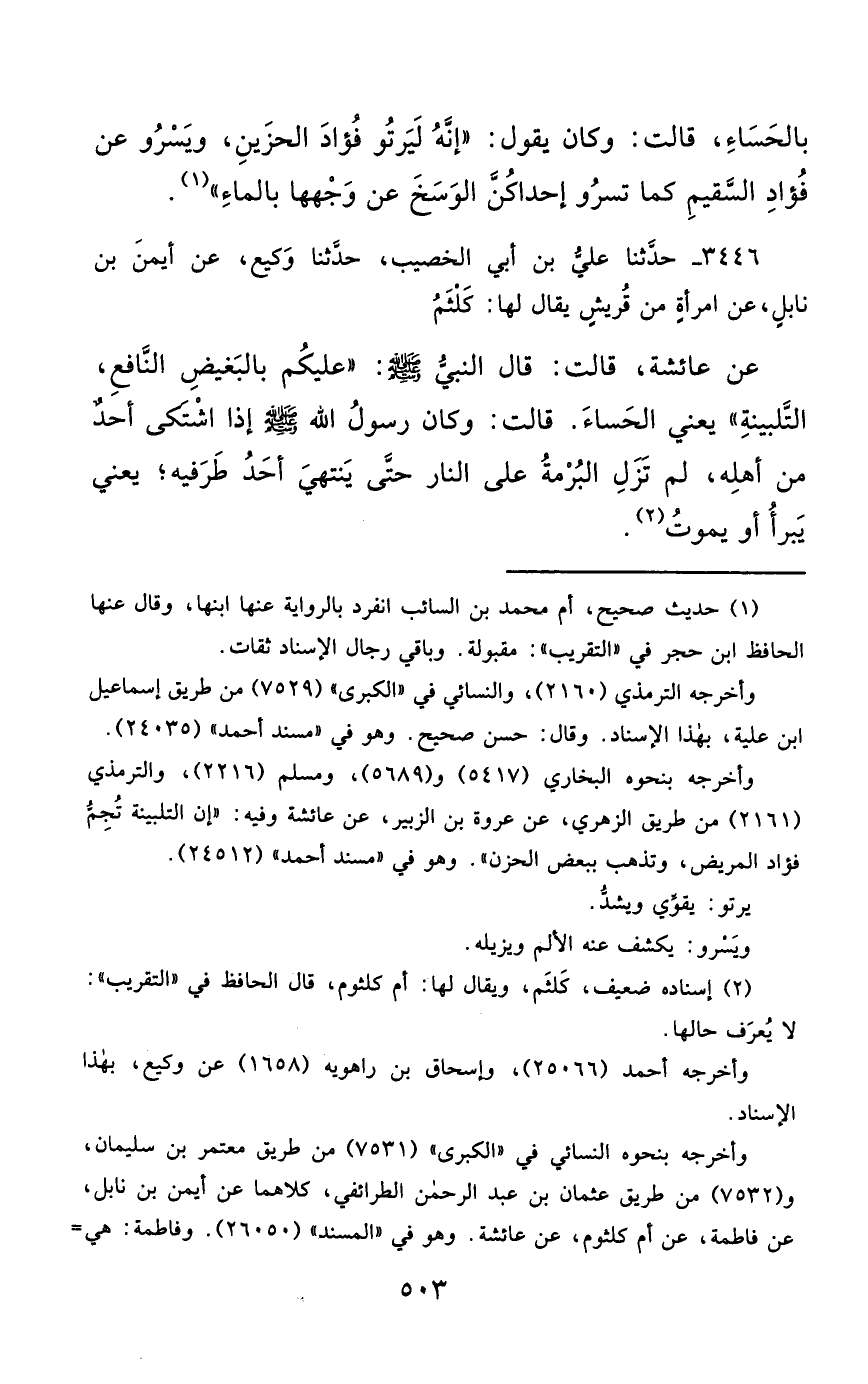 بالحَسَاءِ، قالت: وكان يقول: «إنَّهُ لَيَرتُو فُؤادَ الحزَينِ، ويَسْرُو عن
فُؤادِ السَّقيمِ كما تسرُو إحداكُنَّ الوَسَخَ عن وَجْهها بالماءِ»(١).
٣٤٤٦ـ حدَّثنا عليُّ بن أبي الخصيب، حدَّثنا وَكيع، عن أيمنَ بن
نابلٍ، عن امرأةٍ من قُريشٍ يقال لها: كَلْثَمُ
عن عائشة، قالت: قال النبيُّ ﷺ: «عليكُم بالبَغيضِ النَّافعِ،
التَّلبينةِ» يعني الحَساءَ. قالت: وكان رسولُ الله ﷺ إذا اشْتَكى أحدٌ
من أهلِه، لم تَزَلِ البُرْمةُ على النار حتَّى يَنتهيَ أحَدُ طَرَفيه؛ يعني
يَبرأُ أو يموتُ(٢).
(١) حديث صحيح، أم محمد بن السائب انفرد بالرواية عنها ابنها، وقال عنها
الحافظ ابن حجر في «التقريب»: مقبولة. وباقي رجال الإسناد ثقات.
وأخرجه الترمذي (٢١٦٠)، والنسائي في «الكبرى» (٧٥٢٩) من طريق إسماعيل
ابن علية، بهٰذا الإسناد. وقال: حسن صحيح. وهو في «مسند أحمد» (٢٤٠٣٥).
وأخرجه بنحوه البخاري (٥٤١٧) و(٥٦٨٩)، ومسلم (٢٢١٦)، والترمذي
(٢١٦١) من طريق الزهري، عن عروة بن الزبير، عن عائشة وفيه: «إن التلبينة تُجِمُّ
فؤاد المريض، وتذهب ببعض الحزن». وهو في «مسند أحمد» (٢٤٥١٢).
يرتو: يقوِّي ويشدُّ.
ويَسْرو: يكشف عنه الألم ويزيله.
(٢) إسناده ضعيف، كَلثَم، ويقال لها: أم كلثوم، قال الحافظ في «التقريب»:
لا يُعرَف حالها.
وأخرجه أحمد (٢٥٠٦٦)، وإسحاق بن راهويه (١٦٥٨) عن وكيع، بهٰذا
الإسناد.
وأخرجه بنحوه النسائي في «الكبرى» (٧٥٣١) من طريق معتمر بن سليمان،
و(٧٥٣٢) من طريق عثمان بن عبد الرحمٰن الطرائفي، كلاهما عن أيمن بن نابل،
عن فاطمة، عن أم كلثوم، عن عائشة. وهو في «المسند» (٢٦٠٥٠). وفاطمة: هي=
٥٠٣